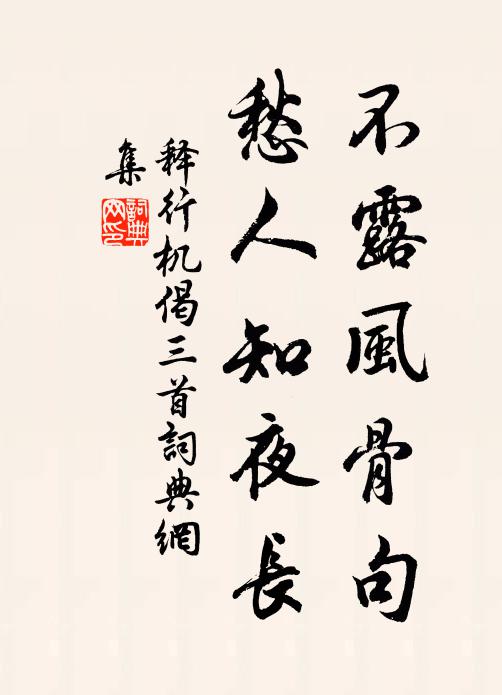 不露風骨句
愁人知夜長
释行机偈三首詞典網
集
詞典
网印